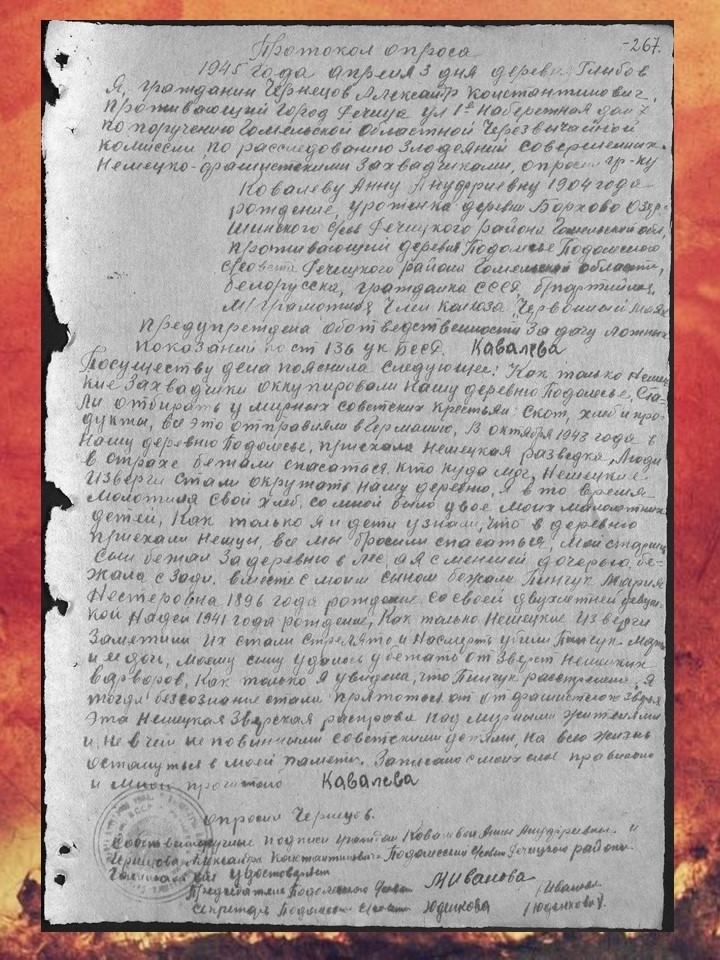 -267.
Протокол опроса
1945 года апреля 3 дня деревня Глыбов
Я, гражданин Чернецов Александр Константинович,
проживающий город Речица ул 1я Набережная дом 7
по поручению Гомельской областной Черезвычайной
комиссии по расследованию злодеяний совершенных
Немецко-фашистскими захвадчиками, опросил гр-ку
Ковалеву Анну Ануфриевну 1904 года
рождение, уроженка деревни Борхово Озер-
щинского с/сов Речицкого района Гомельской обл,
проживающий деревня Подолесье Подолесского
с/совета Речицкого района Гомельской области,
белорусска, гражданка СССР, б/партийная,
м/грамотная, член колхоза "Червонный маяк"
предупреждена об ответведственности за дачу ложных
показаний по ст 136 ук БССР. Кавалева
Посуществу дела пояснила следующее: Как только немец-
кие захвадчики оккупировали нашу деревню Подолесье, ста-
ли отбирать у мирных советских крестьян: скот, хлеб и про-
дукты, все это отправляли в Германию, В октября 1943 года в
нашу деревню Подолесье, приехала немецкая разведка, люди
в страхе бежали спасаться, кто куда мог, Немецкие
изверги стали окружать нашу деревню, я в то время
молотила свой хлеб, со мной было двое моих малолетних
детей, Как только я и дети узнали, что в деревню
приехали немцы, все мы бросили спасаться, мой старший
сын бежал за деревню в лес, а я с меньшей дочерью бе-
жала с зади. вместе с моим сыном бежала Пинчук Мария
Нестеровна 1896 года рождение со своей двухлетней девуш-
кой Надей 1941 года рождение, Как только Немецкие изверги
заметили их стали стрелять и насмерть убили Пинчук мать
и м дочь, моему сыну удалось убежать от зверст немецких
варваров, Как только я увидела, что Пинчук расстреляли, я
тогда безсознание стали прятоться от фашистского зверя
Эта немецкая зверская расправа над мирными жителями
и не в чем не повинными советскими детями, на всю жизнь
остануться в моей памяти. Записано с моих слов правильно
и мною прочитано Кавалева
опросил Чернецов.
Собственоручные подписи граждан Ковалевой Анны Ануфриевны и
Чернецова Александра Константиновича Подолесский с/совет Речицкого района
Гомельской обл удостоверяет
Председатель Подолесского с/совета МИванова /Иванова/
Секретарь Подолесского с/совета Юденкова /Юденкова/.